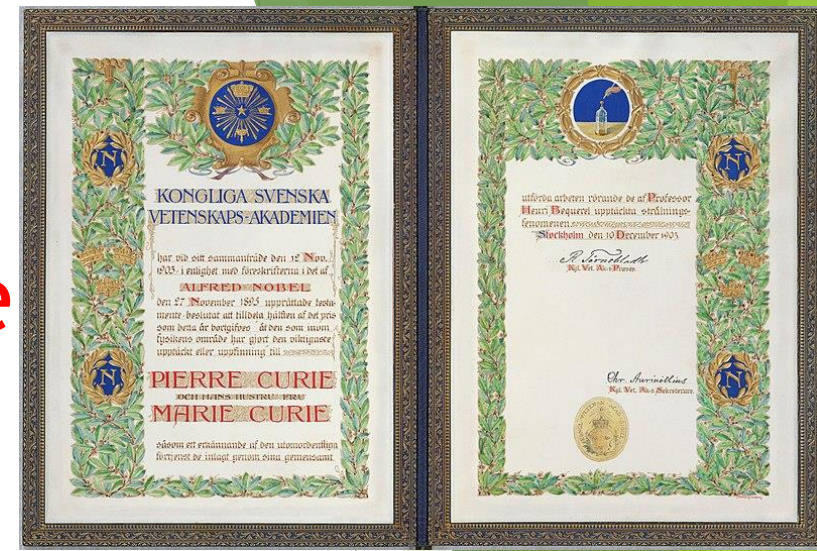 e
KONGLIGA SVENSKA
VETENSKAPS-AKADEMIEN
har vid sitt sammanträde den 12 Nov.
1903 i enlighet med föreskrifterna i det af
ALFRED NOBEL
den 27 November 1895 upprättade testa-
mente beslutat att tilldela hälften af det pris
som detta år bortgifves åt den som inom
fysikens område har gjort den viktigaste
upptäckt eller uppfinning till
PIERRE CURIE
OCH HANS HUSTRU FRU
MARIE CURIE
såsom ett erkännande af den utomordentliga
förtjenst de inlagt genom sina gemensamt
N
N
utförda arbeten rörande de af Professor
Henri Bequerel upptäckta strålnings-
fenomenen
Stockholm den 10 December 1903
Kgl. Vet. Ak:s Præses.
Chr. Aurivillius
Kgl. Vet. Ak:s Sekreterare.
N
N